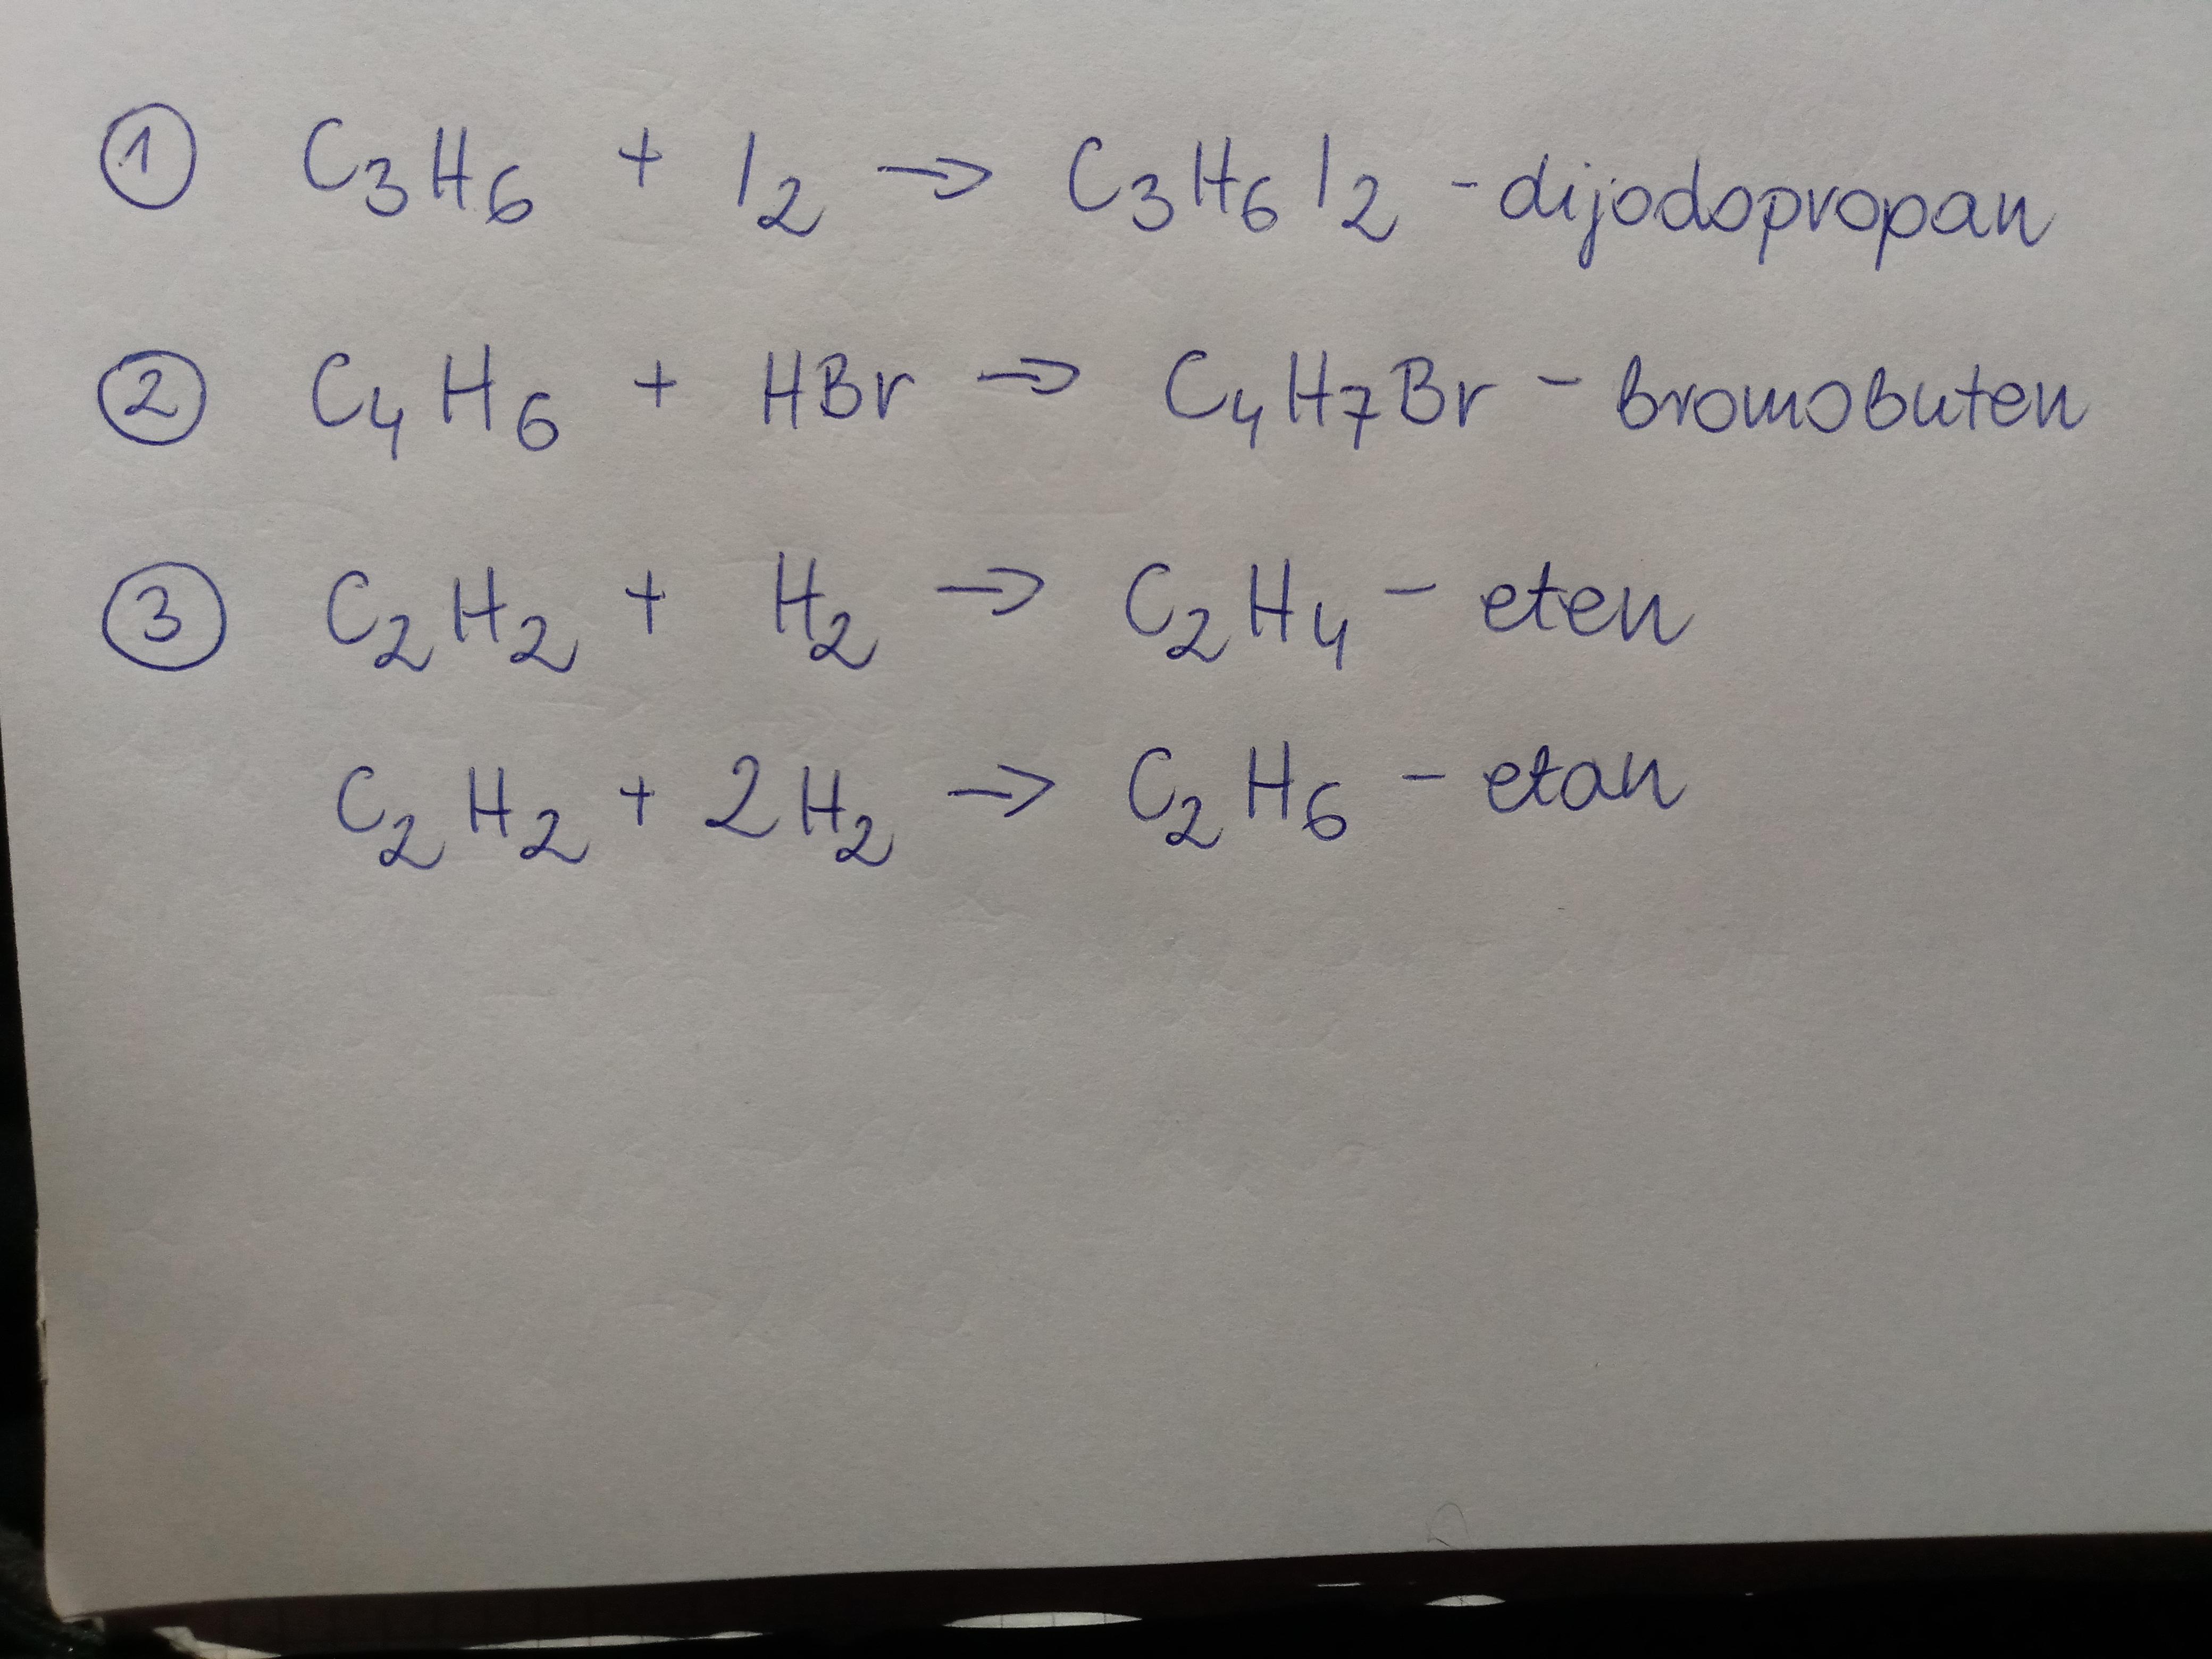 ① C₃H₆ + I₂ → C₃H₆I₂ - dijodopropan
② C₄H₆ + HBr → C₄H₇Br - bromobuten
③ C₂H₂ + H₂ → C₂H₄ - eten
C₂H₂ + 2H₂ → C₂H₆ - etan